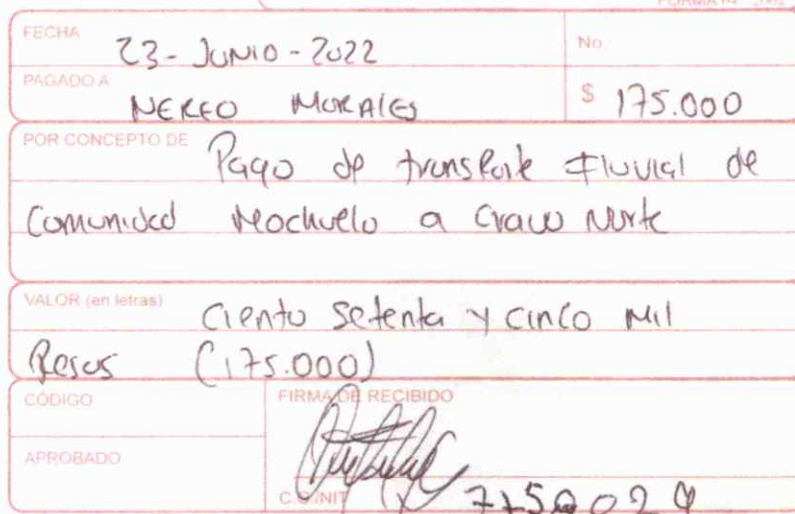 FECHA 23-JUNIO-2022 No.
PAGADO A NEREO MORALES $ 175.000
POR CONCEPTO DE Pago de transporte Fluvial de
Comunidad Mochuelo a Cravo Norte
VALOR (en letras) Ciento setenta y cinco Mil
Pesos (175.000)
CÓDIGO FIRMA DE RECIBIDO
APROBADO